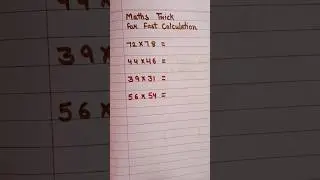 Maths Trick
For Fast Calculation
72 × 78 =
44 × 46 =
39 × 31 =
56 × 54 =